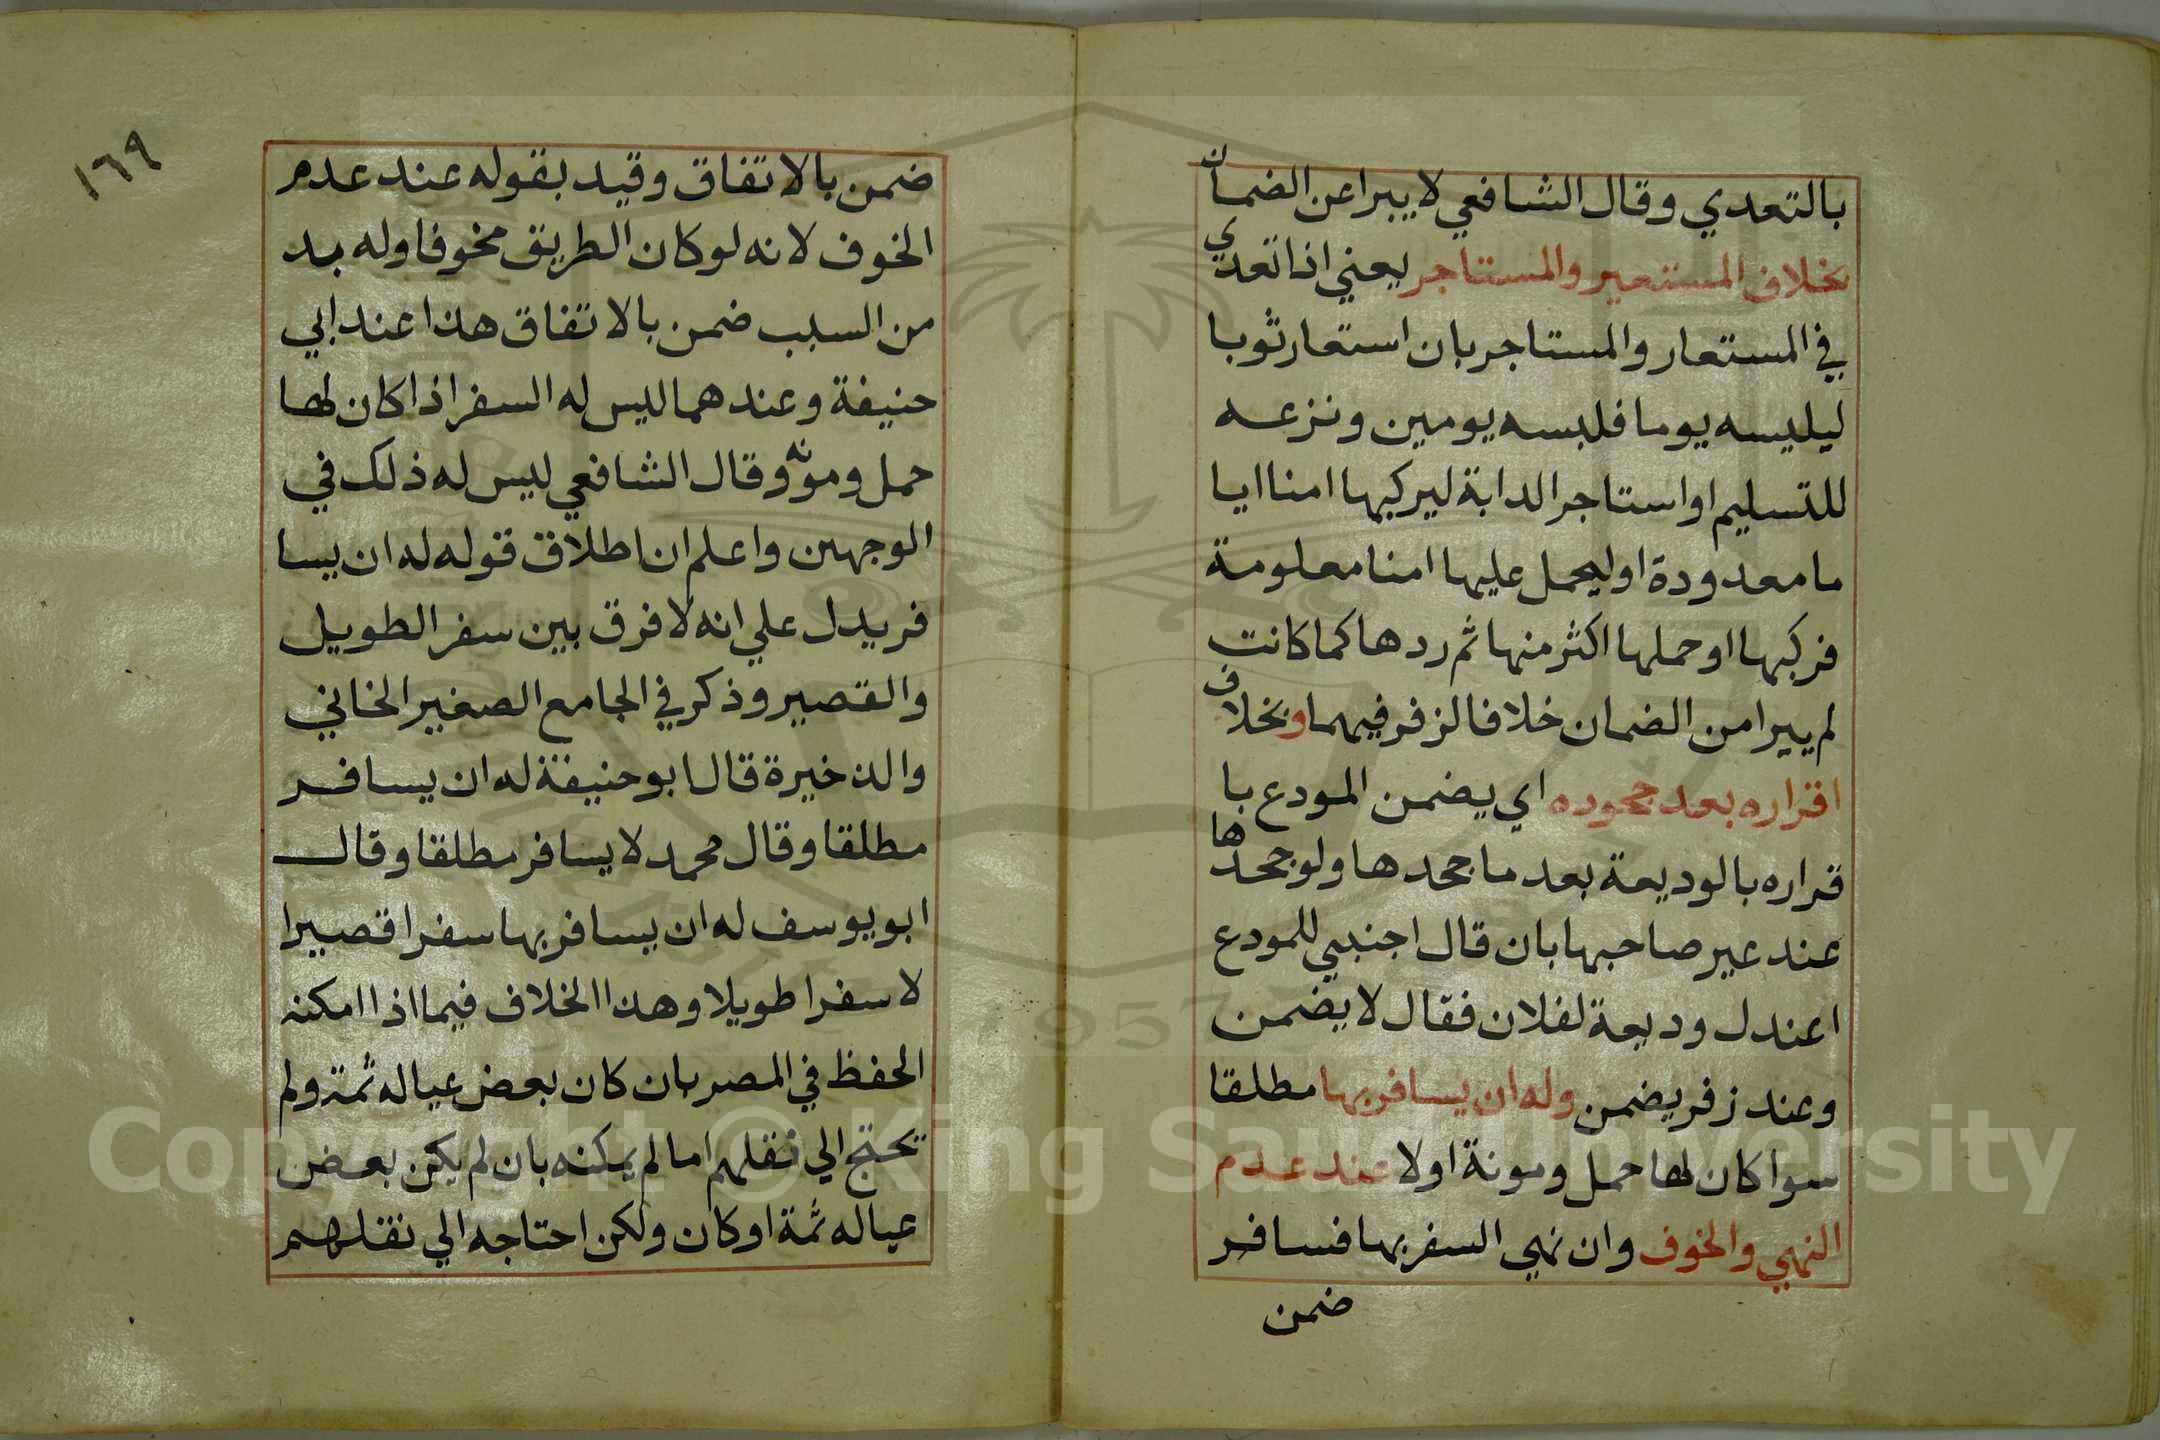 بالتعدي وقال الشافعي لا يبرا عن الضمان
بخلاف المستعير والمستاجر يعني اذا تعدي
في المستعار والمستاجر بان استعار ثوبا
ليلبسه يوما فلبسه يومين ونزعه
للتسليم او استاجر الدابة ليركبها امنا ايا
ما معدودة او ليحمل عليها امنا معلومة
فركبها او حملها اكثر منها ثم ردها كما كانت
لم يبرا من الضمان خلافا لزفر فيهما وبخلاف
اقراره بعد جحوده اي يضمن المودع با
قراره بالوديعة بعد ما جحدها ولو جحدها
عند عير صاحبها بان قال اجنبي للمودع
اعندل وديعة لفلان فقال لا يضمن
وعند زفر يضمن وله ان يسافر بها مطلقا
سوا كان لها حمل ومونة اولا عند عدم
النهي والخوف وان نهي السفر بها فسافر
ضمن
١٦٩
ضمن بالاتفاق وقيد بقوله عند عدم
الخوف لانه لو كان الطريق مخوفا وله بد
من السبب ضمن بالاتفاق هذا عند ابي
حنيفة وعندهما ليس له السفر اذا كان لها
حمل ومونه وقال الشافعي ليس له ذلك في
الوجهين واعلم ان اطلاق قوله له ان يسا
فر يدل علي انه لا فرق بين سفر الطويل
والقصير وذكر في الجامع الصغير الخاني
والذخيرة قال ابو حنيفة له ان يسافر
مطلقا وقال محمد لا يسافر مطلقا وقال
ابو يوسف له ان يسافر بها سفرا قصيرا
لا سفرا طويلا وهذا الخلاف فيما اذا امكنه
الحفظ في المصر بان كان بعض عياله ثمة ولم
تحتج الي نقلهم اما لم يمكنه بان لم يكن بعض
عياله ثمة او كان ولكن احتاجه الي نقلهم
Copyright © King Saud University
1957